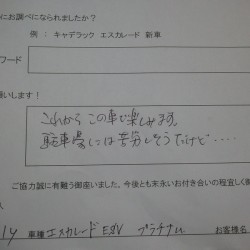 にお調べになられましたか？
例 ： キャデラック エスカレード 新車
ワード
願いします！
これから この車で楽しみます。
駐車場には苦労しそうだけど・・・・・
ご協力誠に有難う御座いました。今後とも末永いお付き合いの程宜しく
14 車種 エスカレード ESV プラチナム お客様名